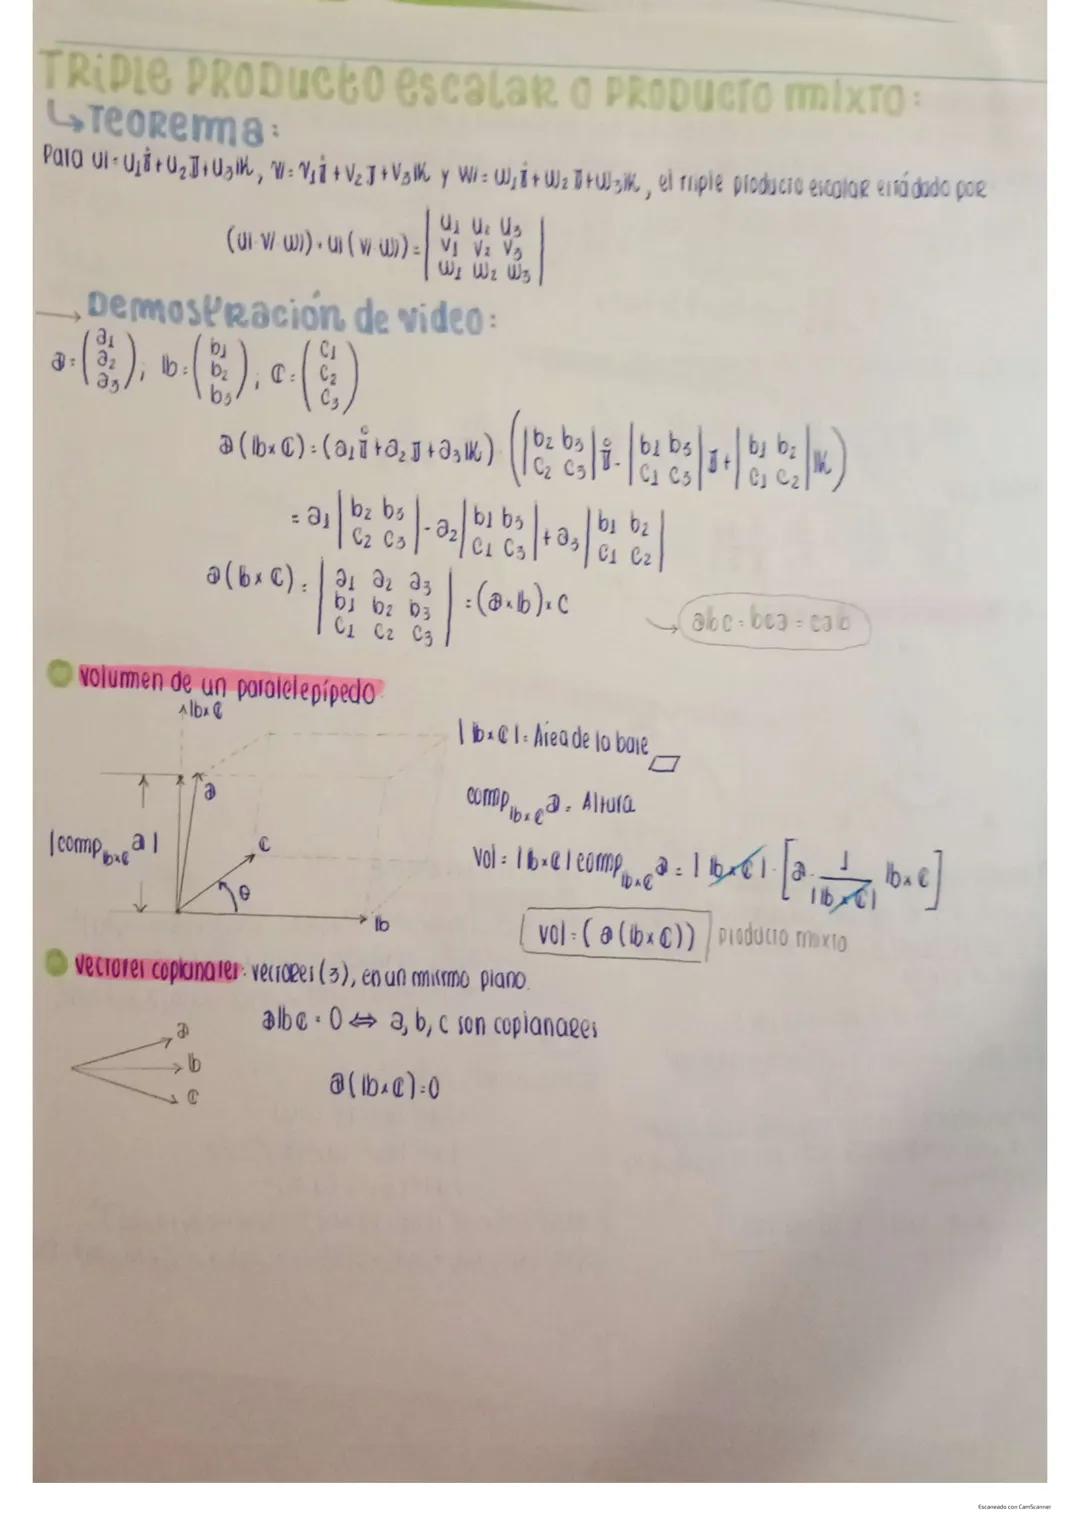 TRIPLE PRODUCTO escalar o PRODUCTO mixto:
↳ Teorema:
Para u = u₁i + u₂j + u₃k, v = v₁i + v₂j + v₃k y w = w₁i + w₂j + w₃k, el triple producto escalar está dado por
(u · v · w) = u (v · w) = | u₁ u₂ u₃ |
| v₁ v₂ v₃ |
| w₁ w₂ w₃ |
→ Demostración de video:
a = (a₁ a₂ a₃); b = (b₁ b₂ b₃); c = (c₁ c₂ c₃)
a (b×c) = (a₁i + a₂j + a₃k) · ( |b₂ b₃ / c₂ c₃| i - |b₁ b₃ / c₁ c₃| j + |b₁ b₂ / c₁ c₂| k )
= a₁ |b₂ b₃ / c₂ c₃| - a₂ |b₁ b₃ / c₁ c₃| + a₃ |b₁ b₂ / c₁ c₂|
a (b×c) = | a₁ a₂ a₃ |
| b₁ b₂ b₃ | = (a×b)×c
| c₁ c₂ c₃ |
→ abc = bca = cab
volumen de un paralelepípedo
b×c
|b×c| = Área de la base
a
comp b×c a = Altura
|comp b×c a|
c
θ
b
vol = |b×c| comp b×c a = |b×c| · [a · 1/|b×c| b×c]
vol = (a (b×c)) producto mixto
vectores coplanares: vectores (3), en un mismo plano.
abc = 0 ⇔ a, b, c son coplanares
a
b
c
a (b×c) = 0
Escaneado con CamScanner